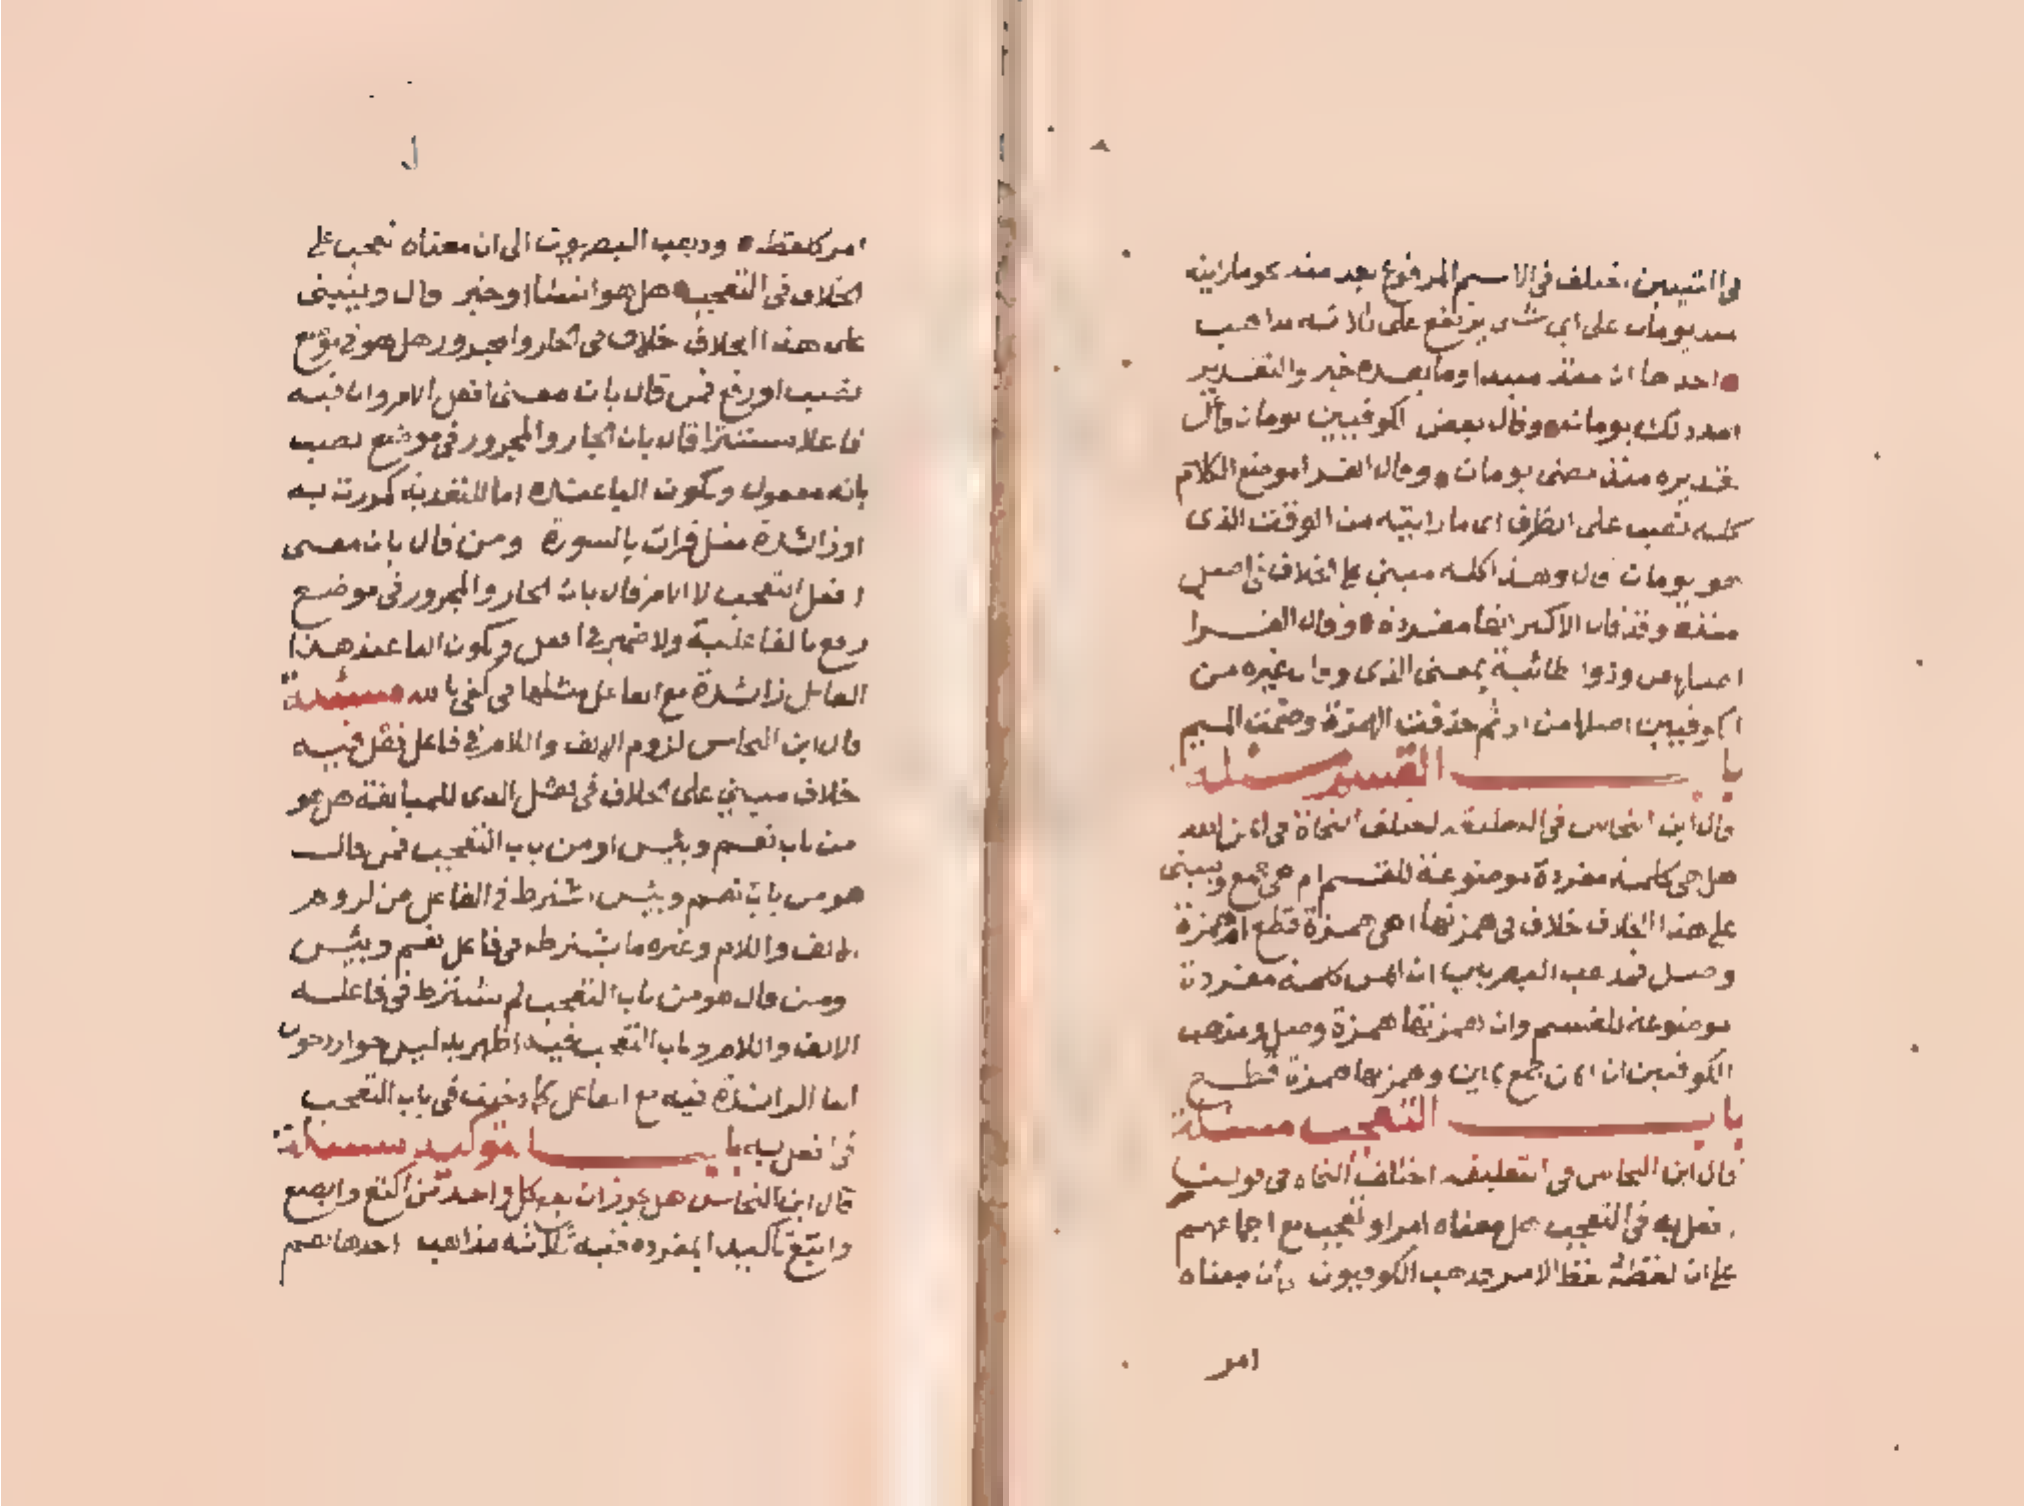 في التبيين اختلف في الاسم المرفوع بعد منذ نحو ما رايته
منذ يومان على اي شي يرتفع على ثلاثة مذاهب
احدها ان منذ مبتدا وما بعده خبر والتقدير
امد ذلك يومان وقال بعض الكوفيين يومان فاعل
تقديره منذ مضى يومان وقال الفرا موضع الكلام
كله نصب على الظرف اي ما رايته من الوقت الذي
هو يومان قال وهذا كله مبني على الخلاف في اصل
منذ وقد قال الاكثر انها مفردة وقال الفرا
اصلها من وذوا طائية بمعنى الذي وقال غيره من
الكوفيين اصلها من اذ ثم حذفت الهمزة وضمت الميم
باب القسم مسئلة
قال ابن النحاس في التعليقة اختلف النحاة في ايمن الله
هل هي كلمة مفردة موضوعة للقسم ام هي جمع ويبني
على هذا الخلاف خلاف في همزتها اهي همزة قطع ام همزة
وصل فمذهب البصريين ان ايمن كلمة مفردة
موضوعة للقسم وان همزتها همزة وصل ومذهب
الكوفيين ان ايمن جمع يمين وهمزتها همزة قطع
باب التعجب مسئلة
قال ابن النحاس في التعليقة اختلف النحاة في قولنا
افعل به في التعجب هل معناه امر او تعجب مع اجماعهم
على ان لفظه لفظ الامر فذهب الكوفيون بان معناه
امر
امر كلفظه وذهب البصريون الى ان معناه تعجب على
الخلاف في التعجب هل هو انشاء او خبر قال وينبني
على هذا الخلاف خلاف في الجار والمجرور هل هو في موضع
نصب او رفع فمن قال بان معنى افعل الامر وان فيه
فاعلا مستترا قال بان الجار والمجرور في موضع نصب
بانه مفعول وتكون الباء عنده اما للتعدية كمررت به
او زائدة مثل قرات بالسورة ومن قال بان معنى
افعل التعجب لا الامر قال بان الجار والمجرور في موضع
رفع بالفاعلية ولا ضمير في افعل وتكون الباء عند هذا
القائل زائدة مع الفاعل مثلها في كفى بالله مسئلة
قال ابن النحاس لزوم الالف واللام في فاعل فعل فيه
خلاف مبني على الخلاف في فعل الذي للمبالغة هل هو
من باب نعم وبئس او من باب التعجب فمن قال
هو من باب نعم وبئس اشترط في الفاعل من لزوم
الالف واللام وغيره ما يشترطه في فاعل نعم وبئس
ومن قال هو من باب التعجب لم يشترط في فاعله
الالف واللام وباب التعجب فيه اظهر بدليل جواز دخول
الباء الزائدة فيه مع الفاعل كما دخلت في باب التعجب
في افعل به باب التوكيد مسئلة
قال ابن النحاس هل يجوز ان يعد كل واحد من اكتع وابصع
وابتع تاكيدا بمفرده فيه ثلاثة مذاهب احدها نعم